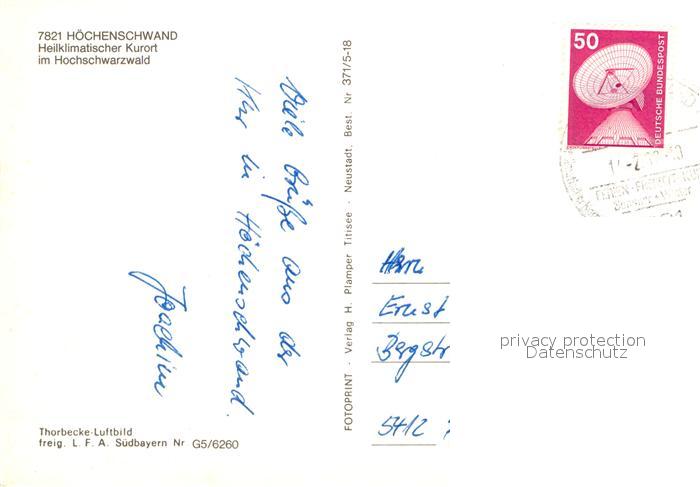 7821 HÖCHENSCHWAND
Heilklimatischer Kurort
im Hochschwarzwald
Viele Grüße aus der
Kur in Höchenschwand.
Joachim
Thorbecke-Luftbild
freig. L. F. A. Südbayern Nr G5/6260
FOTOPRINT · Verlag H. Plamper Titisee · Neustadt, Best. Nr 371/5-18
50
DEUTSCHE BUNDESPOST
Herrn
Ernst
Bergstr
5412
privacy protection
Datenschutz